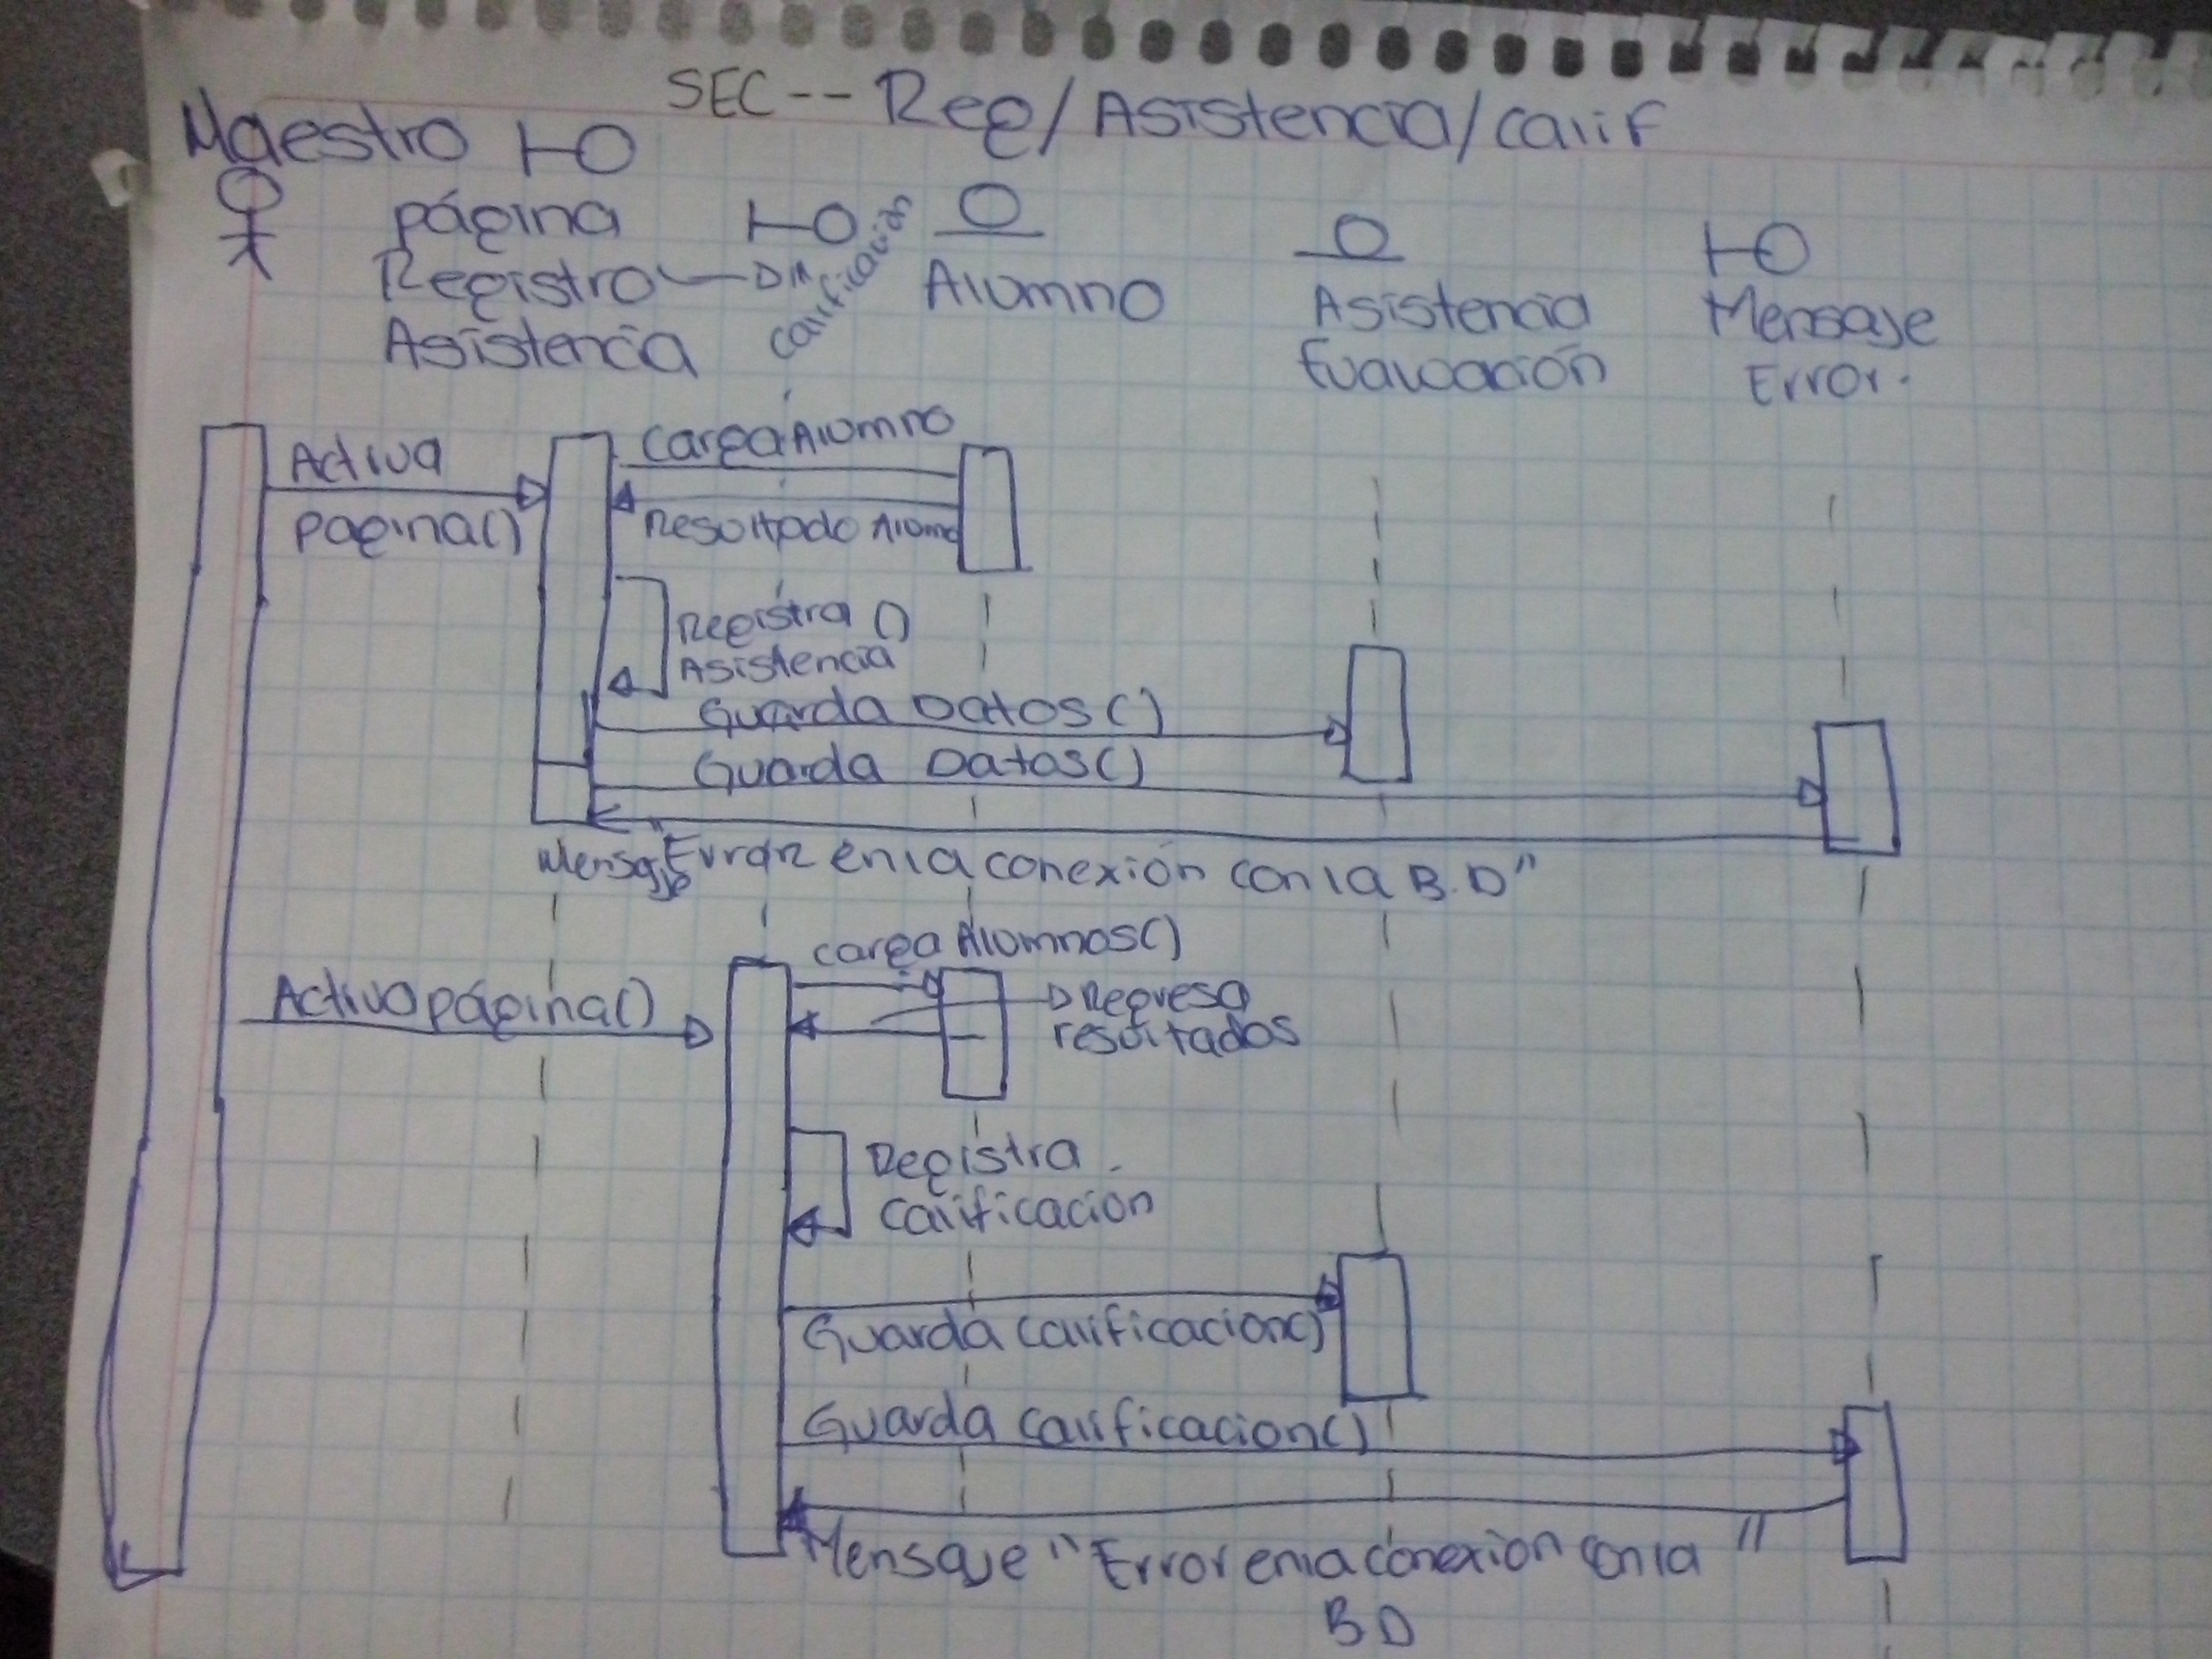 SEC -- Reg/Asistencia/calif
Maestro
página
Registro
Asistencia
calificación
Alumno
Asistencia
Evaluación
Mensaje
Error.
Activa
pagina()
carga Alumno
Resultado Alumno
Registra ()
Asistencia
Guarda Datos()
Guarda Datos()
Mensaje "Error en la conexión con la B.D"
carga Alumnos()
Activa página()
Regresa
resultados
Registra
calificacion
Guarda calificacion()
Guarda calificacion()
Mensaje "Error en la conexion con la "
BD